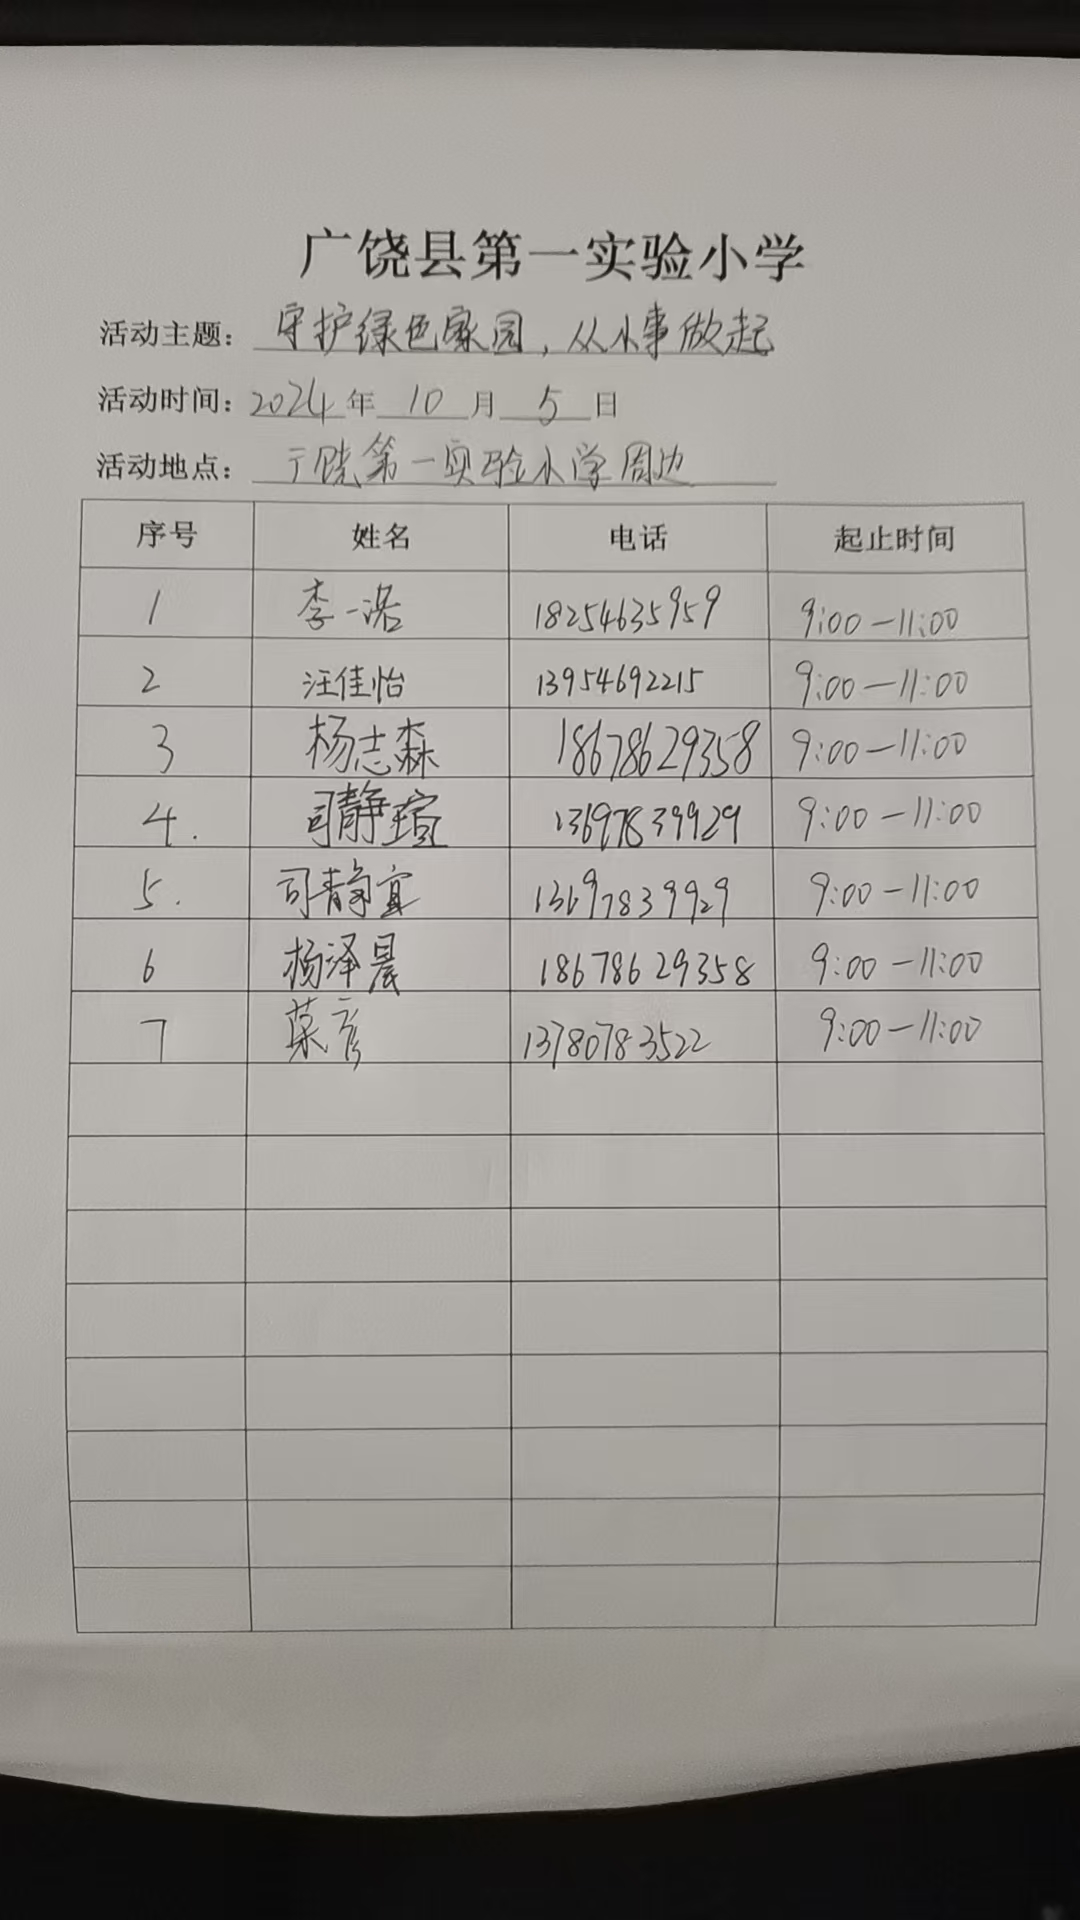 广饶县第一实验小学
活动主题：守护绿色家园，从小事做起
活动时间：2024年 10 月 5 日
活动地点：广饶第一实验小学周边
序号 姓名 电话 起止时间
1 李一诺 18254635959 9:00—11:00
2 汪佳怡 13954692215 9:00—11:00
3 杨志森 18678629358 9:00—11:00
4. 司静瑄 13697839929 9:00—11:00
5. 司静宜 13697839929 9:00—11:00
6 杨泽晨 18678629358 9:00—11:00
7 13780783522 9:00—11:00